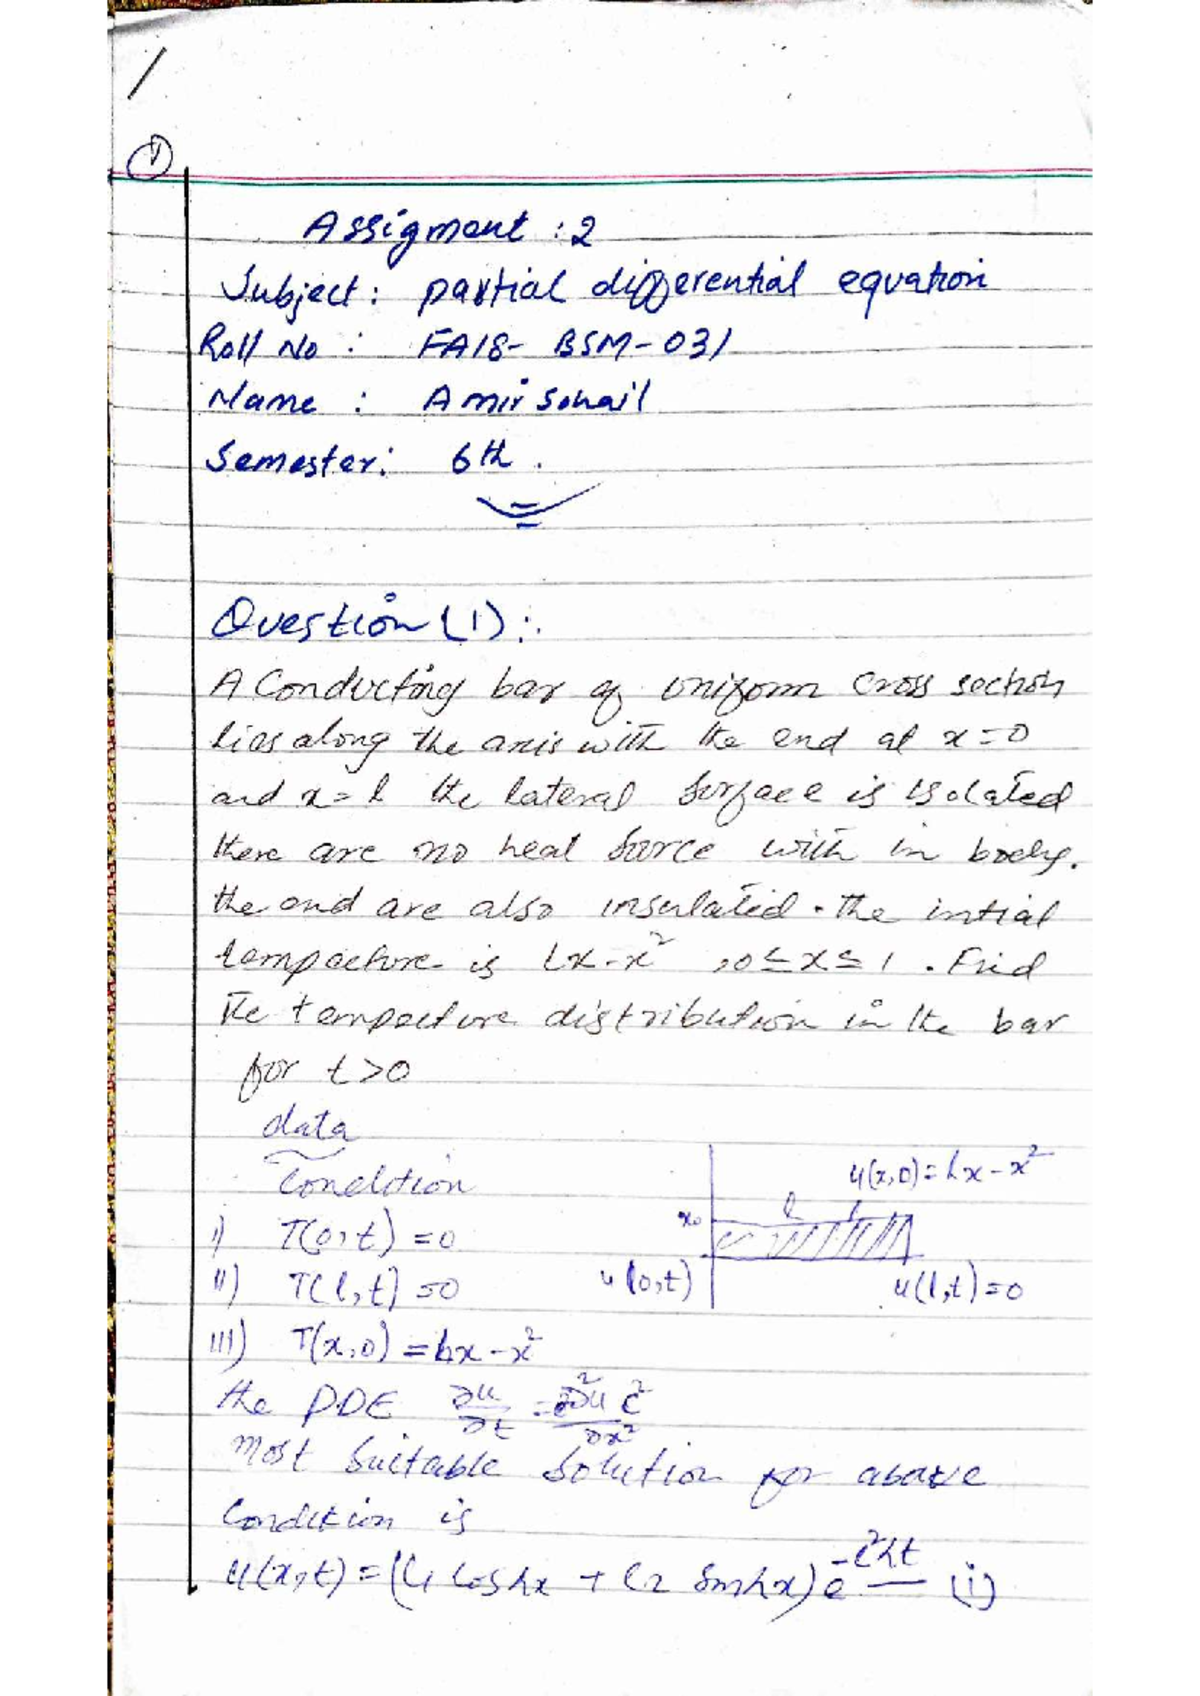 1
Assigment : 2
Subject : partial differential equation
Roll No : FA18- BSM-031
Name : Amir Sohail
Semester: 6th .
Question (1) :.
A Conducting bar of uniform cross section
lies along the axis with the end at x=0
and x=l the lateral surface is isolated
there are no heat source with in body.
the end are also insulated. The intial
tempaeture is lx-x² , 0≤x≤1 . Find
the tempaeture distribution in the bar
for t>0
data
Condition
u(x,0)=lx-x²
i) T(0,t) =0
l
x₀
ii) T(l,t) =0
u(0,t)
u(l,t)=0
iii) T(x,0) =lx-x²
the PDE ∂u/∂t = ∂²u/∂x² c²
most Suitable Solution for above
Condition is
u(x,t) = (C₁ Cosλx + C₂ Sinλx) e^-c²λt — (i)